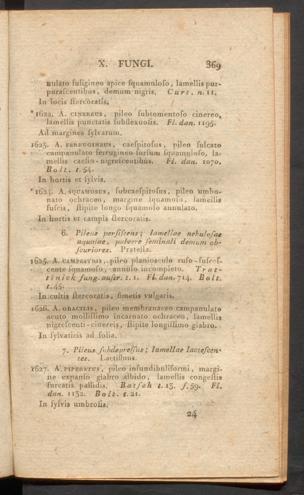 X. FUNGI. 369
nulato fuligineo apice squamuloso, lamellis pur-
purascentibus, demum nigris. Curt. n. 11.
In locis stercoratis.
*1622. A. CINEREUS, pileo subtomentoso cinereo,
lamellis punctatis subflexuosis. Fl. dan. 1195.
Ad margines sylvarum.
1623. A. FERRUGINEUS, caespitosus, pileo sulcato
campanulato ferrugineo sursum squamuloso, la-
mellis caesio-nigrescentibus. Fl. dan. 1070.
Bolt. t. 54.
In hortis et sylvis.
*1624. A. SQUAMOSUS, subcaespitosus, pileo umbo-
nato ochraceo, margine squamoso, lamellis
fuscis, stipite longo squamoso annulato.
In hortis et campis stercoratis.
6. Pileus persistens; lamellae nebulosae
aquaine, pulvere seminali demum ob-
scuriores. Pratella.
1625. A. CAMPESTRIS, pileo planiusculo rufo-fusces-
cente squamoso, annulo incompleto. Trat-
tinick fung. austr. t. 1. Fl. dan. 714. Bolt.
t. 45.
In cultis stercoratis, fimetis vulgaris.
1626. A. GRACILIS, pileo membranaceo campanulato
acuto mollissimo incarnato ochraceo, lamellis
nigrescenti-cinereis, stipite longissimo glabro.
In sylvaticis ad folia.
7. Pileus subdepressus; lamellae lactescen-
tes. Lactifluus.
1627. A. PIPERATUS, pileo infundibuliformi, margi-
ne expanso glabro albido, lamellis congestis
furcatis pallidis. Batsch t. 13. f. 59. Fl.
dan. 1132. Bolt. t. 21.
In sylvis umbrosis.
24